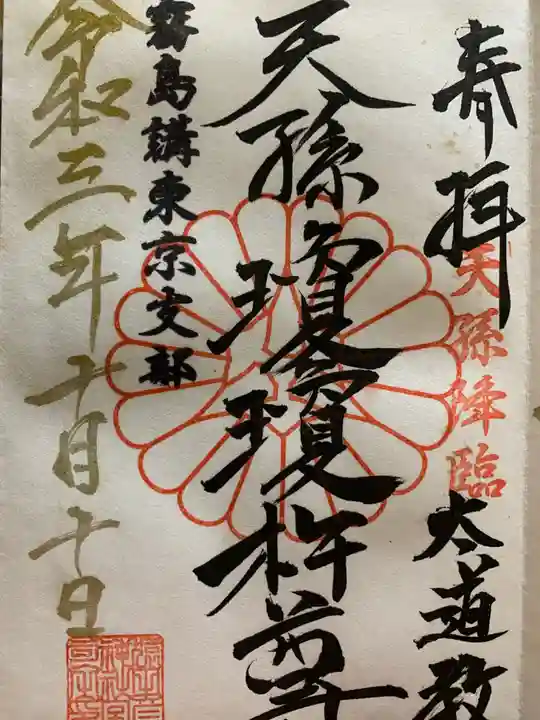 奉拝
天孫降臨
太道教
天孫瓊瓊杵尊
霧島講東京支部
令和三年十月十日